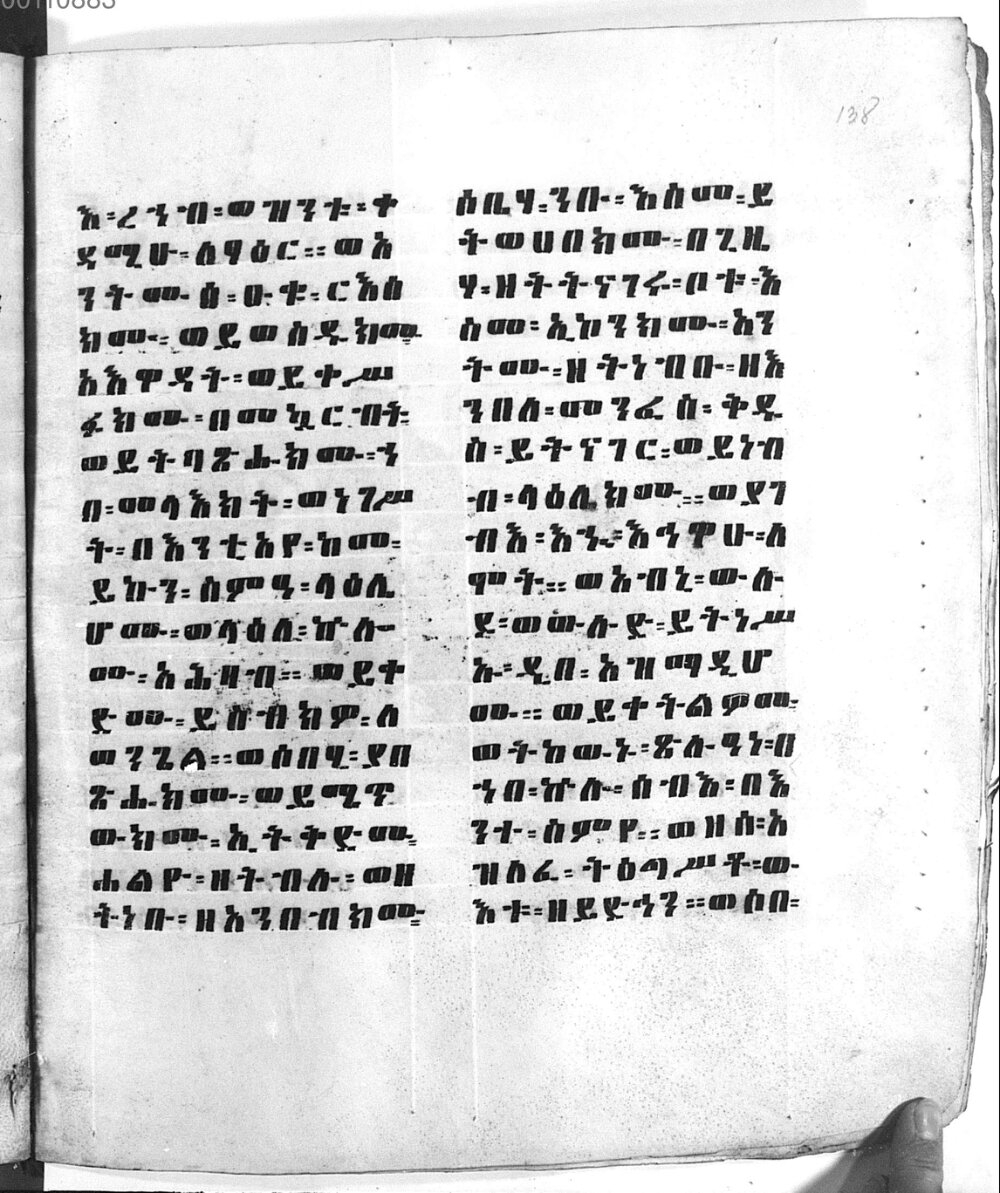 00110883
138
እ፡ረኀብ፡ወዝንቱ፡ቀ
ዳሚሁ፡ለፃዕር።ወአ
ንትሙሰ፡ዑቁ፡ርእሰ
ክሙ፡ወይወስዱክሙ
አእዋዳት፡ወይቀሥ
ፉክሙ፡በመኳርብት፡
ወይትባጽሑክሙ፡ኀ
በ፡መላእክት፡ወነገሥ
ት፡በእንቲአየ፡ከመ፡
ይኩን፡ስምዓ፡ላዕሌ
ሆሙ፡ወላዕለ፡ኵሉ
መ፡አሕዛብ።ወይቀ
ድሙ፡ይሰብክዎ፡ለ
ወንጌል።ወሶበሂ፡ያበ
ጽሑክሙ፡ወይሚጥ
ውክሙ፡ኢትትድሙ፡
ሐልዮ፡ዘትብሉ፡መዘ
ትነቡ፡ዘአንበብክሙ፡
ሶቢሃ፡ንቡ፡እስመ፡ይ
ትወሀበክሙ፡በጊዜ
ሃ፡ዘትትናገሩ፡ቦቱ፡እ
ስመ፡ኢኮንክሙ፡አን
ትሙ፡ዘትነብቡ፡ዘእ
ንበለ፡መንፈሰ፡ቅዱ
ስ፡ይትናገር፡ወይነብ
ብ፡ላዕሌክሙ።ወያገ
ብእ፡እኁ፡እኅዋሁ፡ለ
ሞት።ወአብኒ፡ውሉ
ደ፡ወውሉድ፡ይትነሥ
ኡ፡ዲበ፡አዝማዲሆ
ሙ።ወይቀትልዎሙ፡
ወትከውኑ፡ጽሉዓነ፡በ
ኀበ፡ኵሉ፡ሰብእ፡በእ
ንተ፡ስምየ።ወዘሰ፡አ
ዝለፈ፡ትዕጣሥቶ፡ው
እቱ፡ዘይድኅን።ወሶበ፡